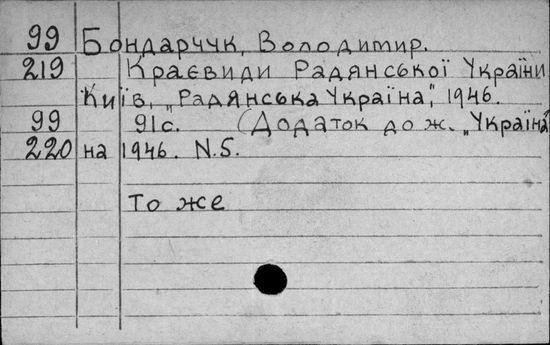 99 Бондарччк, Володимир.
219 Краєвиди Радянської України
Київ, „Радянська Україна", 1946.
99 91с. (Додаток до ж. „Україна"
220 на 1946. N.5.
То же